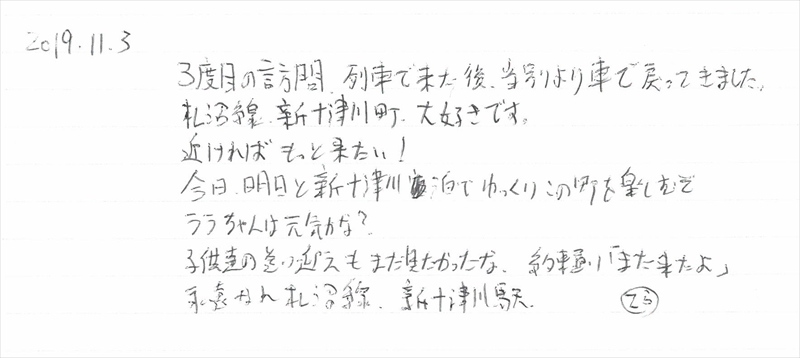 2019.11.3
3度目の訪問、列車で来た後、当別より車で戻ってきました。
札沼線、新十津川町、大好きです。
近ければもっと来たい!
今日、明日と新十津川泊でゆっくりこの町を楽しむぞ
ララちゃんは元気かな?
子供達の送り迎えもまた見たかったな、約束通り「また来たよ」
永遠なれ札沼線、新十津川駅